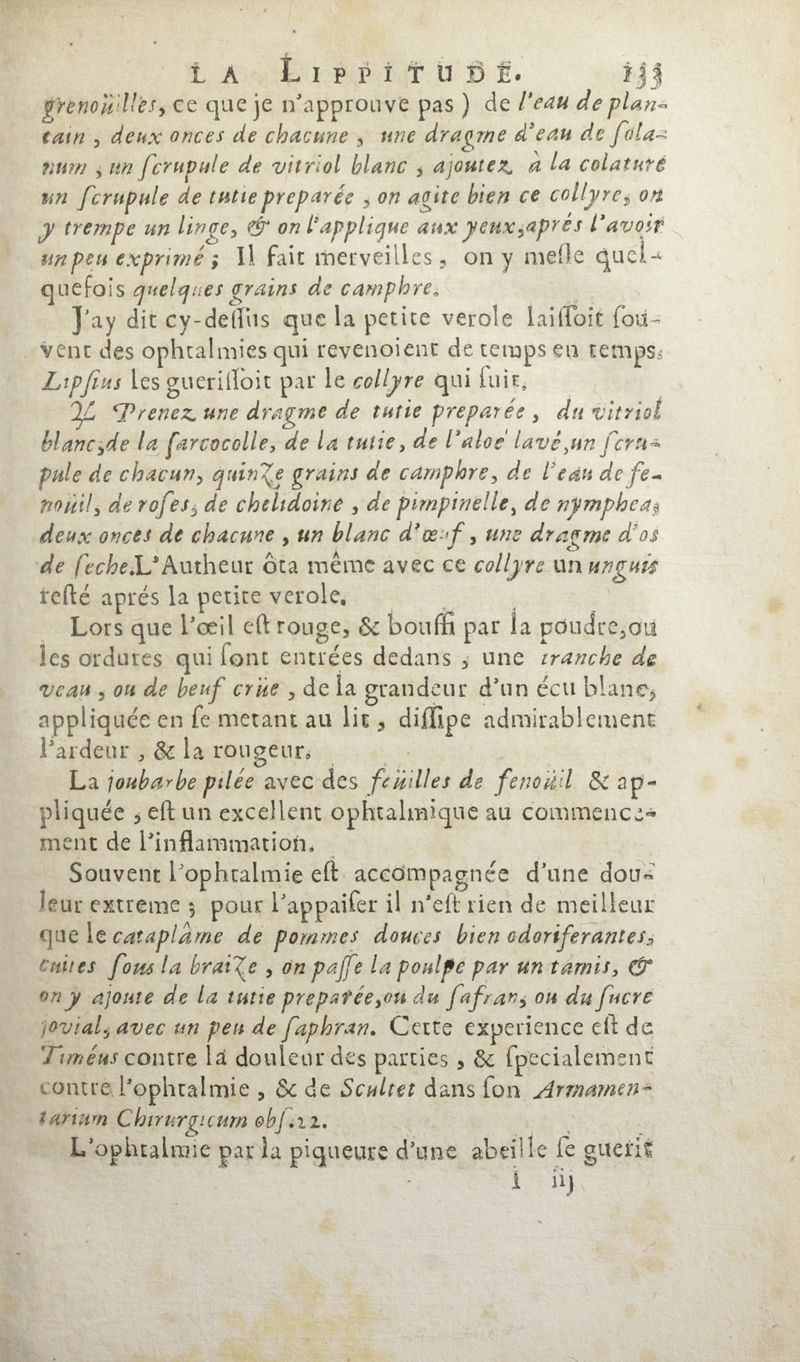 LA LIPPITUDE. 133
grenoüilles, ce que je n'approuve pas ) de l'eau de plan-
tain , deux onces de chacune , une dragme d'eau de ſola-
num , un ſcrupule de vitriol blanc , ajoutez à la colature
un ſcrupule de tutie preparée , on agite bien ce collyre, on
y trempe un linge, & on l'applique aux yeux,aprés l'avoir
un peu exprimé ; Il fait merveilles , on y meſle quel-
quefois quelques grains de camphre.
J'ay dit cy-deſſus que la petite verole laiſſoit ſou-
vent des ophtalmies qui revenoient de temps en temps.
Lipſius les gueriſſoit par le collyre qui ſuit.
℞ Prenez une dragme de tutie preparée , du vitriol
blanc,de la ſarcocolle, de la tutie, de l'aloé lavé,un ſcru-
pule de chacun, quinze grains de camphre, de l'eau de fe-
noüil, de roſes, de chelidoine , de pimpinelle, de nymphea,
deux onces de chacune , un blanc d'œuf , une dragme d'os
de ſeche.L'Autheur ôta même avec ce collyre un unguis
reſté aprés la petite verole.
Lors que l'œil eſt rouge, & bouffi par la poudre,ou
les ordures qui ſont entrées dedans , une tranche de
veau , ou de beuf crüe , de la grandeur d'un écu blanc,
appliquée en ſe metant au lit , diſſipe admirablement
l'ardeur , & la rougeur.
La joubarbe pilée avec des feüilles de fenoüil & ap-
pliquée , eſt un excellent ophtalmique au commence-
ment de l'inflammation.
Souvent l'ophtalmie eſt accompagnée d'une dou-
leur extreme ; pour l'appaiſer il n'eſt rien de meilleur
que le cataplâme de pommes douces bien odoriferantes,
cuites ſous la braize , on paſſe la poulpe par un tamis, &
on y ajoute de la tutie preparée,ou du ſafran, ou du ſucre
jovial, avec un peu de ſaphran. Cette experience eſt de
Timéus contre la douleur des parties , & ſpecialement
contre l'ophtalmie , & de Scultet dans ſon Armamen-
tarium Chirurgicum obſ.22.
L'ophtalmie par la piqueure d'une abeille ſe guerit
i iij